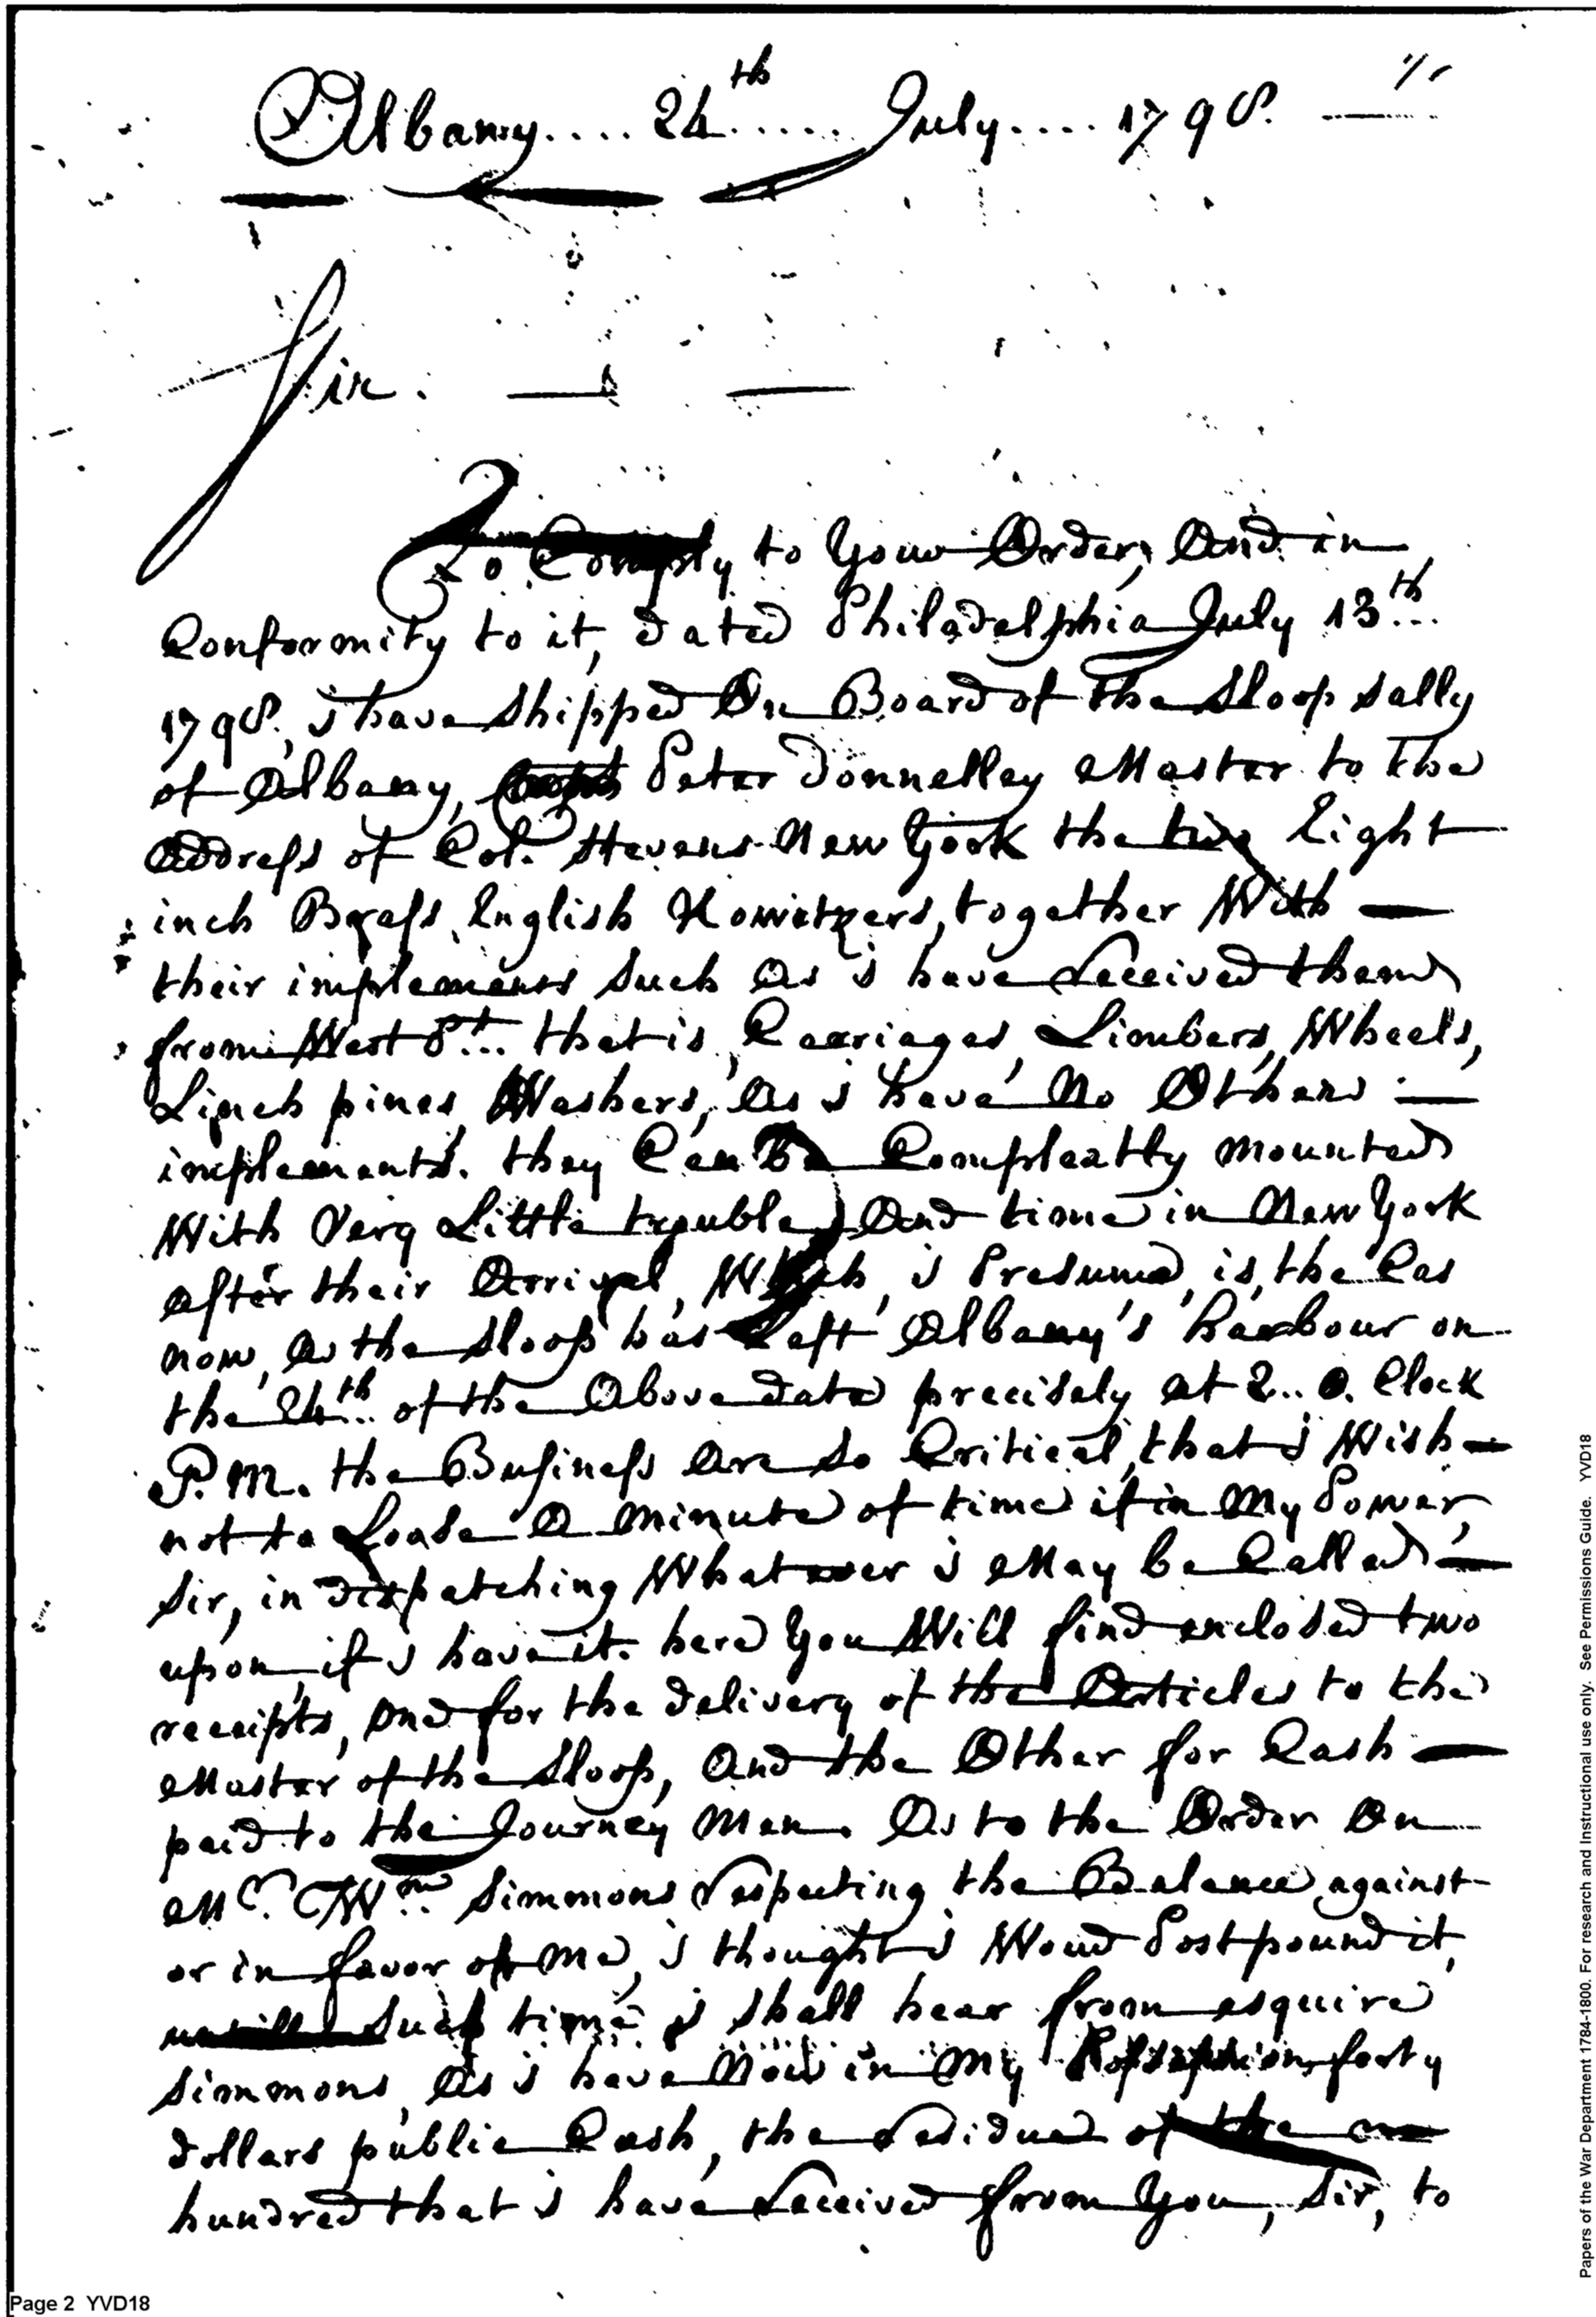 Albany.... 24th..... July.... 1798.
Sir.
To Comply to Your Order, And in
Conformity to it, dated Philadelphia July 13th...
1798, i have Shipped On Board of the Sloop Sally
of Albany, Peter Donnelley Master to the
Address of Col. Stevens New York the two Eight
inch Brass English Howitzers, together With
their implements Such As i have Received them
from West Pt... that is, Carriages, Limbers, Wheels,
Linch pines, Washers, As i have No Others
implements. they Can Be Compleatly mounted
With Very Little trouble, And time in New York
after their Arrival, Which, i Presume, is, the Cas
now, As the Sloop has Left Albany's harbour on
the 24th... of the Above date precisely at 2.. o. Clock
P.M. the Business Are So Critical, that i Wish
not to Loase A minute of time if in My Power,
Sir, in dispatching Whatever i May be Called
upon, if i have it. here You Will find enclosed two
receipts, one for the delivery of the Articles to the
Master of the Sloop, And the Other for Cash
paid to the Journey Men. As to the Order On
Mr. Wm Simmons Respecting the Balance against
or in favor of me, i thought i Woud Postpound it,
untill Such time i Shall hear from esquire
Simmons, As i have Now in My Possession forty
dollars public Cash, the Residue of the one
hundred that i have Received from You, Sir, to
Page 2 YVD18
Papers of the War Department 1784-1800. For research and Instructional use only. See Permissions Guide. YVD18